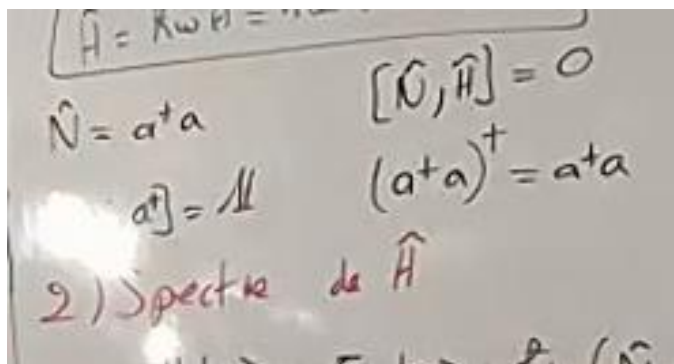 Ĥ = ħω Ĥ =
N̂ = a⁺a [N̂, Ĥ] = 0
a⁺] = 𝟙 (a⁺a)⁺ = a⁺a
2) Spectre de Ĥ